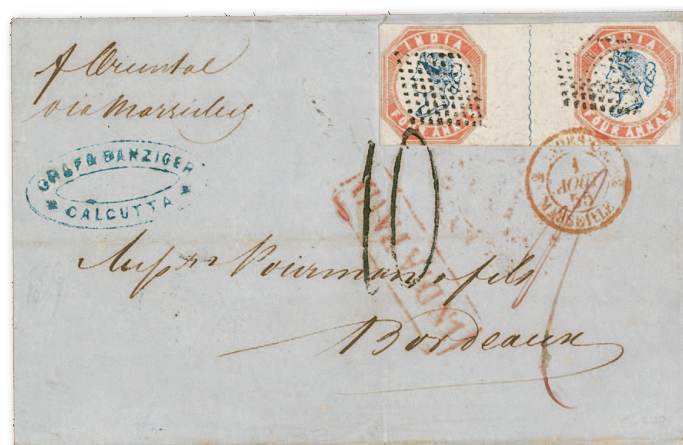 INDIA
FOUR ANNAS
INDIA
FOUR ANNAS
p Oriental
via Marseille
GRAF & BANZIGER
CALCUTTA
10
1
MARSEILLE
INDIA PAID
Messrs & fils
Bordeaux